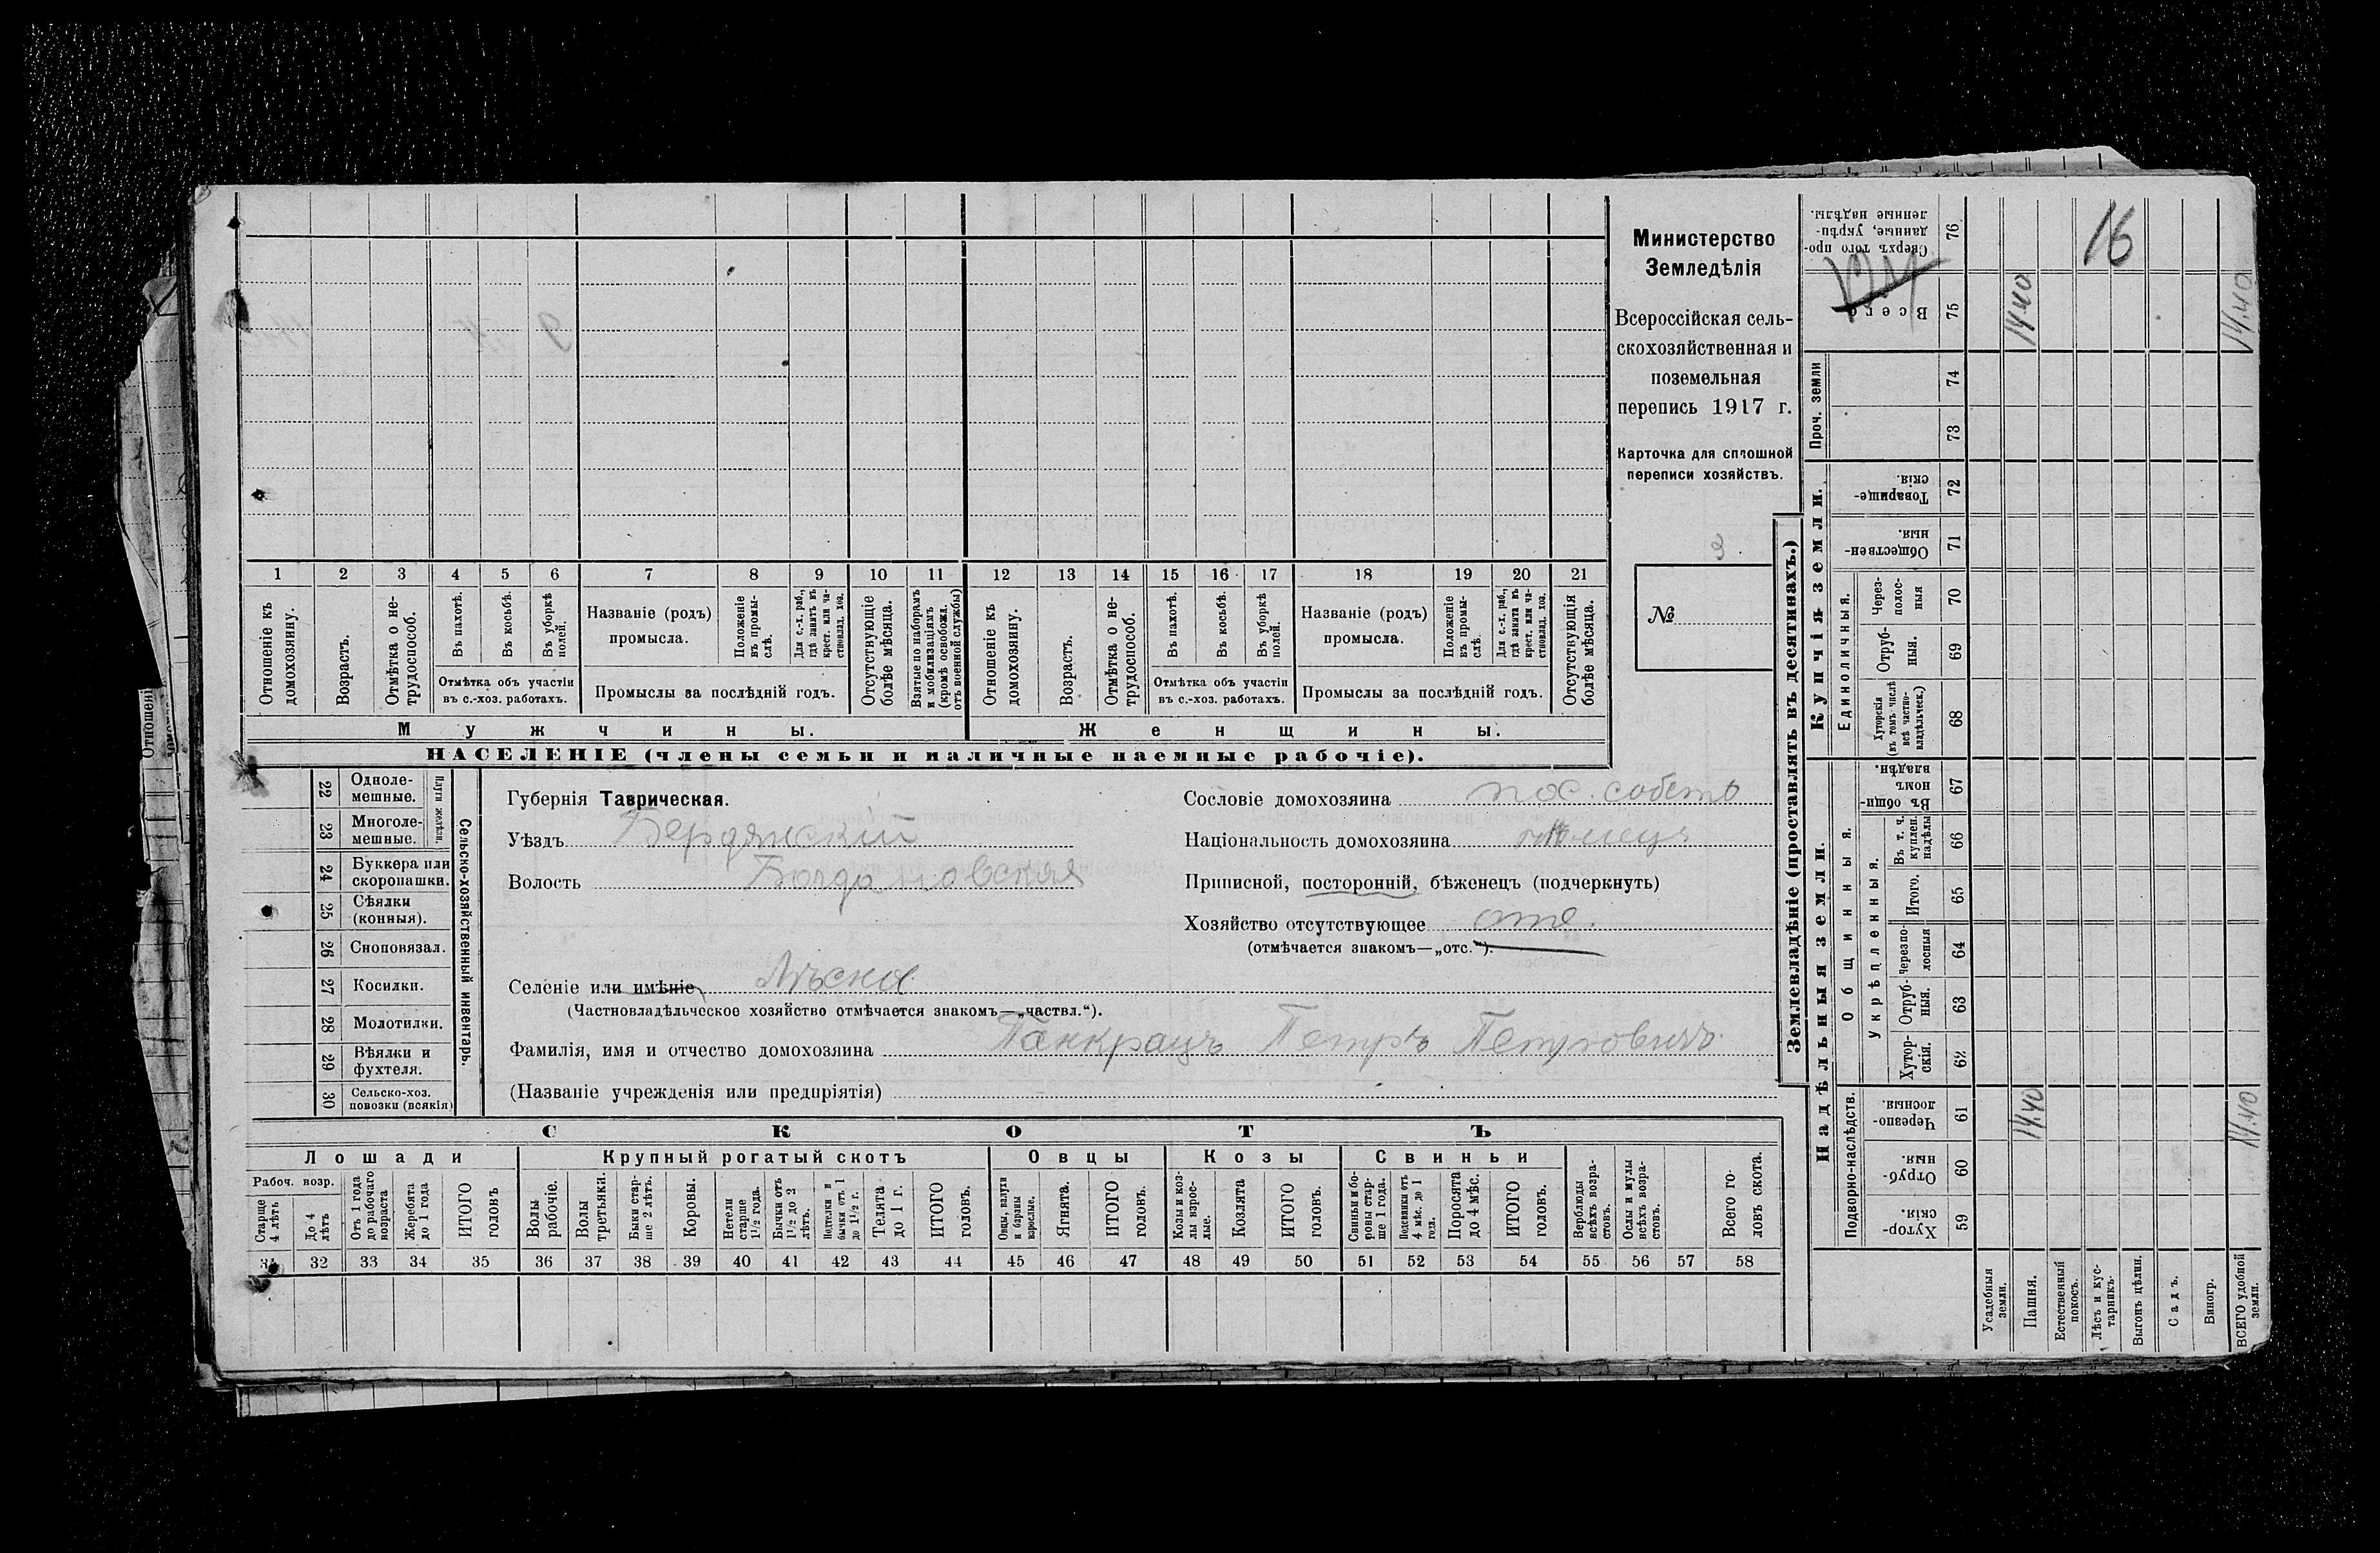 Министерство
Земледѣлія
Всероссійская сель-
скохозяйственная и
поземельная
перепись 1917 г.
Карточка для сплошной
переписи хозяйствъ.
3.
№
1 2 3 4 5 6 7 8 9 10 11 12 13 14 15 16 17 18 19 20 21
Отношеніе къ домохозяину.
Возрастъ.
Отмѣтка о не-трудоспособ.
Въ пахотѣ.
Въ косьбѣ.
Въ уборкѣ полей.
Отмѣтка объ участіи
въ с.-хоз. работахъ.
Названіе (родъ)
промысла.
Положеніе въ промы-слѣ.
Для с.-х. раб., гдѣ занятъ въ крест. или ча-стновлад. хоз.
Промыслы за послѣдній годъ.
Отсутствующіе болѣе мѣсяца.
Взятые по наборамъ и мобилизаціямъ (кромѣ освобожд. отъ военной службы)
Отношеніе къ домохозяину.
Возрастъ.
Отмѣтка о не-трудоспособ.
Въ пахотѣ.
Въ косьбѣ.
Въ уборкѣ полей.
Отмѣтка объ участіи
въ с.-хоз. работахъ.
Названіе (родъ)
промысла.
Положеніе въ промы-слѣ.
Для с.-х. раб., гдѣ занята въ крест. или ча-стновлад. хоз.
Промыслы за послѣдній годъ.
Отсутствующія болѣе мѣсяца.
Мужчины. Женщины.
НАСЕЛЕНІЕ (члены семьи и наличные наемные рабочіе).
22 Одноле-мешные.
23 Многоле-мешные.
Плуги желѣзн.
24 Буккера или скоропашки.
25 Сѣялки (конныя).
26 Сноповязал.
27 Косилки.
28 Молотилки.
29 Вѣялки и фухтеля.
30 Сельско-хоз. повозки (всякія)
Сельско-хозяйственный инвентарь.
Губернія Таврическая.
Уѣздъ Бердянскій
Волость Богдановская
Сословіе домохозяина пос. собств
Національность домохозяина нѣмецъ
Приписной, посторонній, бѣженецъ (подчеркнуть)
Хозяйство отсутствующее отс.
(отмѣчается знакомъ—„отс.“).
Селеніе или имѣніе
(Частновладѣльческое хозяйство отмѣчается знакомъ—„частвл.“).
Фамилія, имя и отчество домохозяина Панкрацъ Петръ Петровичъ
(Названіе учрежденія или предпріятія)
СКОТЪ
Лошади Крупный рогатый скотъ Овцы Козы Свиньи
Рабоч. возр.
Старше 4 лѣтъ
До 4 лѣтъ
Отъ 1 года до рабочаго возраста
Жеребята до 1 года
ИТОГО головъ
Волы рабочіе.
Волы третьяки.
Быки стар-ше 2 лѣтъ.
Коровы.
Нетели старше 1½ года.
Бычки отъ 1½ до 2 лѣтъ.
Подтелки и бычки отъ 1 до 1½ г.
Телята до 1 г.
ИТОГО головъ.
Овцы, валухи и бараны взрослые.
Ягнята.
ИТОГО головъ.
Козы и коз-лы взрос-лые.
Козлята
ИТОГО головъ.
Свиньи и бо-ровы стар-ше 1 года.
Подсвинки отъ 4 мѣс. до 1 года.
Поросята до 4 мѣс.
ИТОГО головъ.
Верблюды всѣхъ возра-стовъ.
Ослы и мулы всѣхъ возра-стовъ.
Всего го-ловъ скота.
31 32 33 34 35 36 37 38 39 40 41 42 43 44 45 46 47 48 49 50 51 52 53 54 55 56 57 58
Землевладѣніе (проставлять въ десятинахъ.)
Надѣльныя земли. Купчія земли. Проч. земли
Подворно-наслѣдств.
Общинныя.
Укрѣпленныя.
Единоличныя.
Хутор-скія. 59
Отруб-ныя. 60
Черезпо-лосныя. 61
Хутор-скія. 62
Отруб-ныя. 63
Черезпо-лосныя 64
Итого. 65
Въ т. ч. куплен. надѣлы 66
Въ общин-номъ владѣн. 67
Хуторскія (въ томъ числѣ всѣ частно-владѣльческ.) 68
Отруб-ныя. 69
Через-полос-ныя 70
Обществен-ныя. 71
Товарище-скія. 72
73
74
Всего 75
Сверхъ того про-данные, укрѣп-ленные надѣлы. 76
Усадебныя земли.
Пашня. 14.40 14.40
Естественный покосъ.
Лѣсъ и кус-тарникъ. 16
Выгонъ цѣлин.
Садъ.
Виногр.
ВСЕГО удобной земли. 14.40 14.40